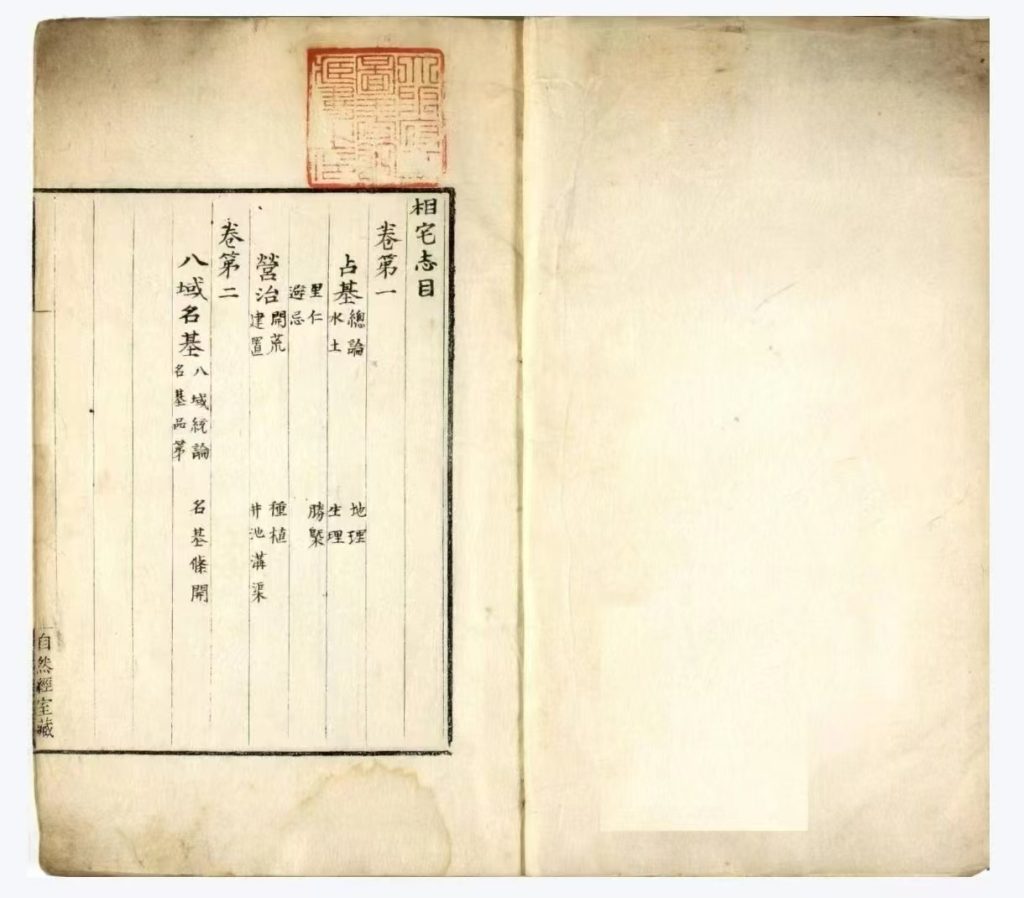 相宅志目
卷第一
占基
總論 地理
水土 生理
里仁 勝槩
避忌
營治
開荒 種植
建置 井池溝渠
卷第二
八域名基
八域統論 名基條開
名基品第
自然經室藏